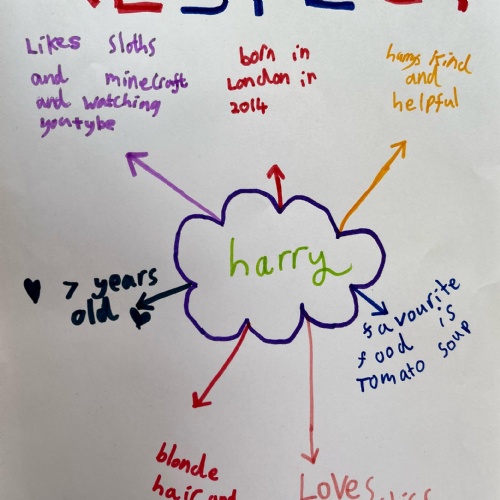 RESPECT
Likes Sloths
and minecraft
and watching
youtybe
born in
London in
2014
kind
and
helpful
harry
7 years
old
favourite
food is
Tomato soup
blonde
hair and
Loves